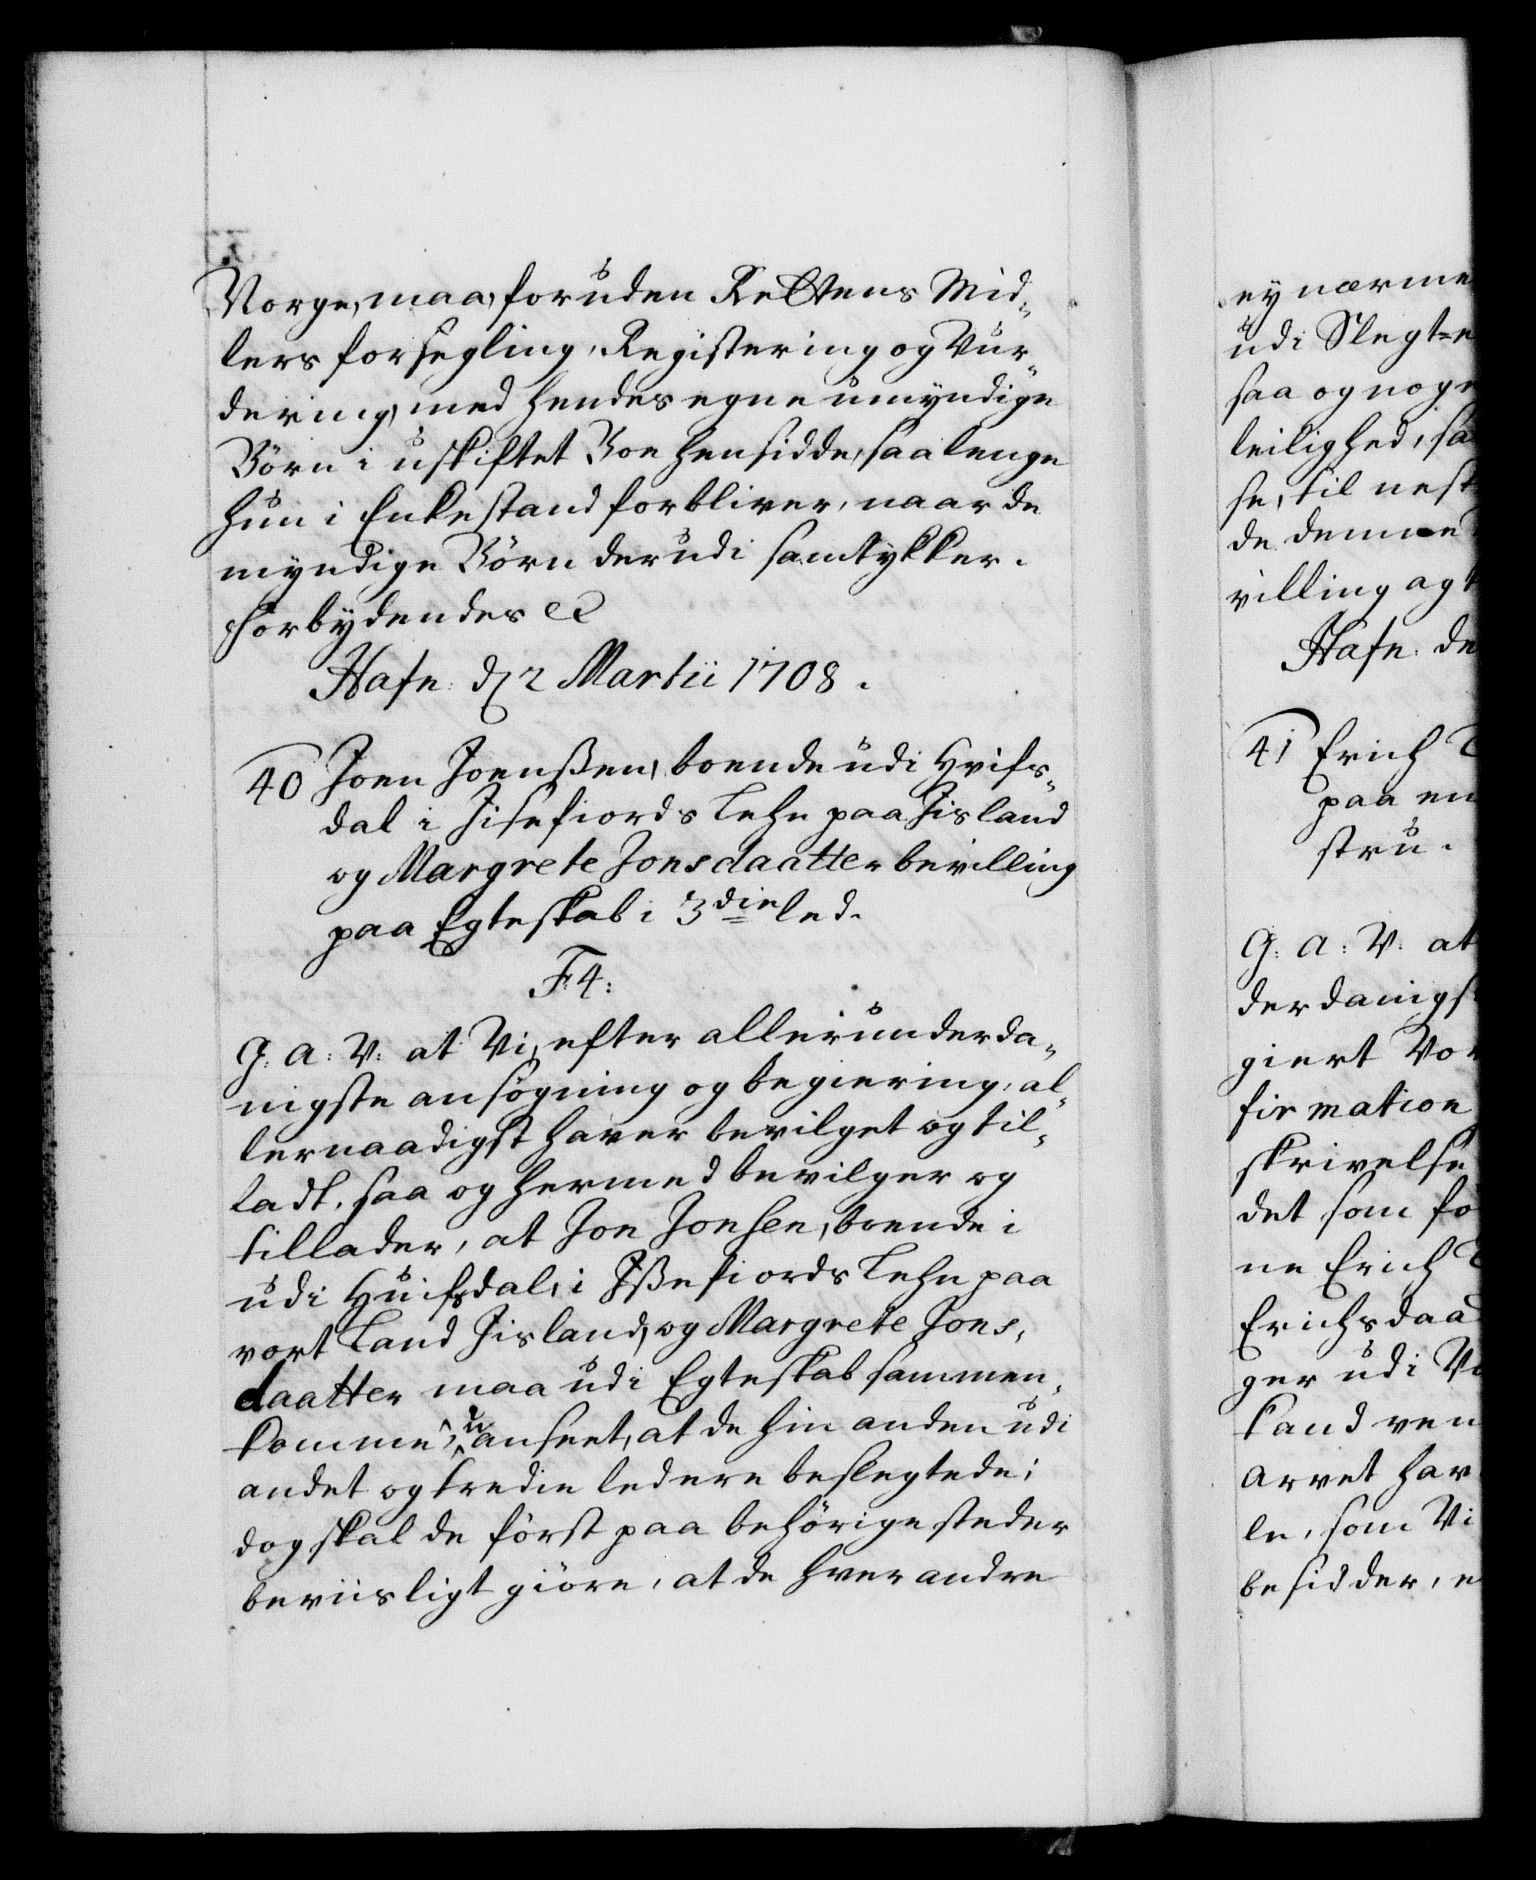 Vorge, maa, foruden Rettens Mid-
lers forsegling, Registering og Vur-
dering, med hendes egne umyndige
Börn i uskiftet Boe hensidde, saa lenge
hun i Enkestand forbliver, naar de
myndige Börn derudi samtykker.
Forbydendes &c
Hafn: d. 2 Martii 1708.
40 Joen Joenßen, boende udi Hvifs-
dal i Jisefiords Lehn paa Jisland
og Margrete Jonsdaatter bevilling
paa Egteskab i 3die led.
F:4:
G: A: V: at Vi, efter allerunderda-
nigste ansögning og begiering, al-
lernaadigst haver bevilget og til-
ladt, saa og hermed bevilger og
tillader, at Jon Jonsen, boende i
udi Huifsdal, i Jßefiords Lehn paa
vort Land Jisland, og Margrete Jons-
daatter maa udi Egteskab sammen-
komme, u anseet, at de hin anden udi
andet og tredie led ere beslegtede;
dog skal de först paa behörige steder
beviisligt giöre, at de hver andre
ey nærme
udi Slegt-e
saa og noge
leilighed, sa
se, til nest
de denne
villing agt
Hafn: de
41 Erich
paa en
stru.
G: A: V: at
derdanigs
giert Vor
firmation
skrivelse
det som fo
ne Erich
Erichsdaa
ger udi Vo
kand ven
arvet hav
le, som Vi
besidder, e